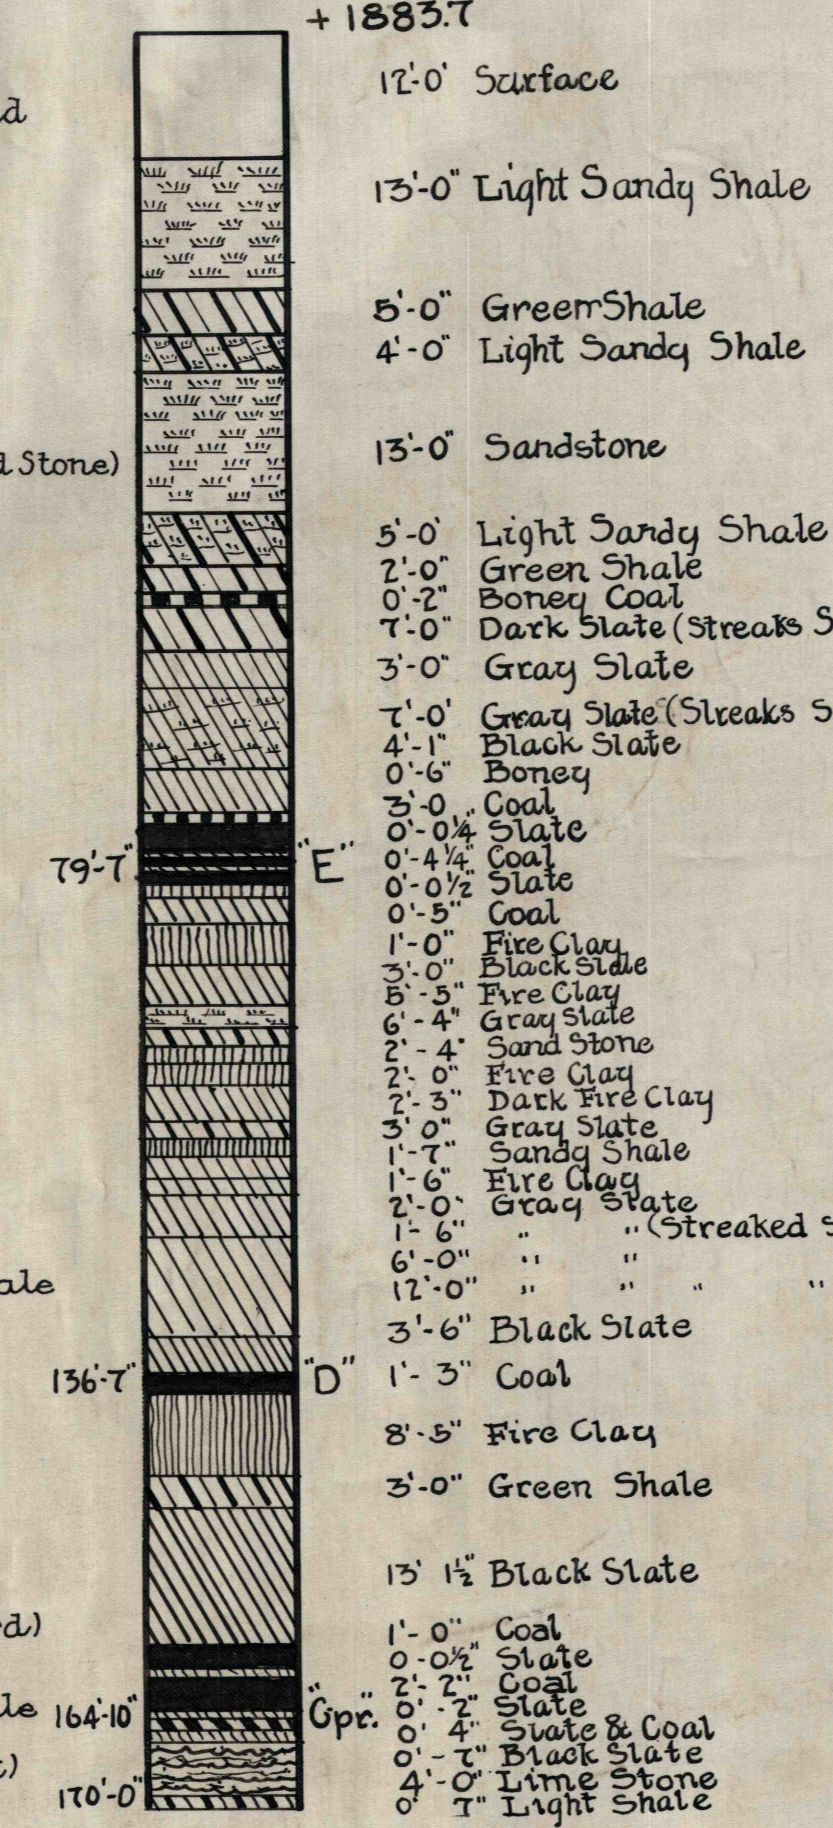 + 1883.7
12'-0' Surface
d
13'-0" Light Sandy Shale
5'-0" Green Shale
4'-0" Light Sandy Shale
13'-0" Sandstone
d Stone)
5'-0' Light Sandy Shale
2'-0" Green Shale
0'-2" Boney Coal
7'-0" Dark Slate (Streaks S
3'-0" Gray Slate
7'-0' Gray Slate (Streaks S
4'-1" Black Slate
0'-6" Boney
3'-0 " Coal
0'-0¼ Slate
79'-7" "E" 0'-4¼" Coal
0'-0½" Slate
0'-5" Coal
1'-0" Fire Clay
3'-0" Black Slate
5'-5" Fire Clay
6'-4" Gray Slate
2'-4" Sand Stone
2'- 0" Fire Clay
2'-3" Dark Fire Clay
3' 0" Gray Slate
1'-7" Sandy Shale
1'-6" Fire Clay
2'-0" Gray Slate
1'- 6" " " (Streaked S
6'-0" " "
ale 12'-0" " " " "
3'-6" Black Slate
136'-7" "D" 1'- 3" Coal
8'-5" Fire Clay
3'-0" Green Shale
13' 1½" Black Slate
rd) 1'- 0" Coal
0-0½" Slate
2'- 2" Coal
le 164'-10" "Cpr." 0' -2" Slate
0' 4" Slate & Coal
0'-7" Black Slate
t)
4'-0" Lime Stone
170'-0" 0' 7" Light Shale